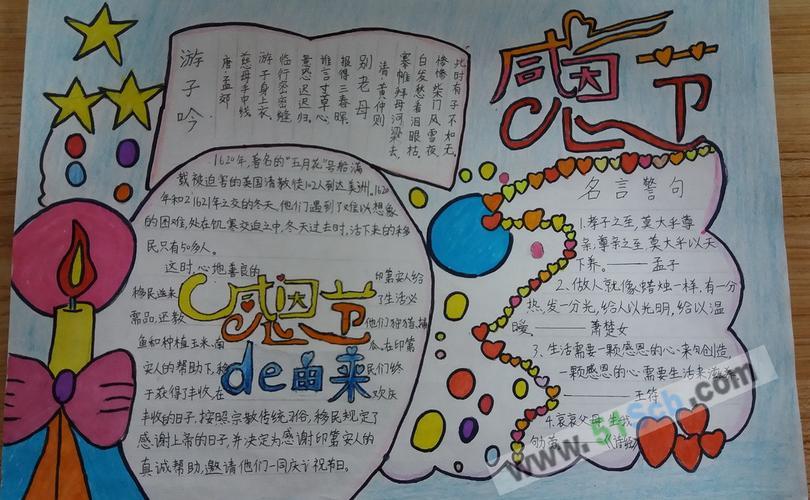 游子吟
唐·孟郊
慈母手中线
游子身上衣。
临行密密缝
意恐迟迟归。
谁言寸草心
报得三春晖
别老母
清·黄仲则
搴帏拜母河梁去，
白发愁看泪眼枯，
惨惨柴门风雪夜
此时有子不如无。
感恩节
1620年，著名的"五月花"号船满
载被迫害的英国清教徒102人到达美洲。1620
年和1621年之交的冬天，他们遇到了难以想象
的困难，处在饥寒交迫之中，冬天过去时，活下来的移
民只有50多人。
这时，心地善良的 印第安人给
移民送来 了生活必
需品，还教 他们狩猎、捕
鱼和种植玉米、南 瓜，在印第
安人的帮助下，移 民们终
于获得了丰收，在 欢庆
丰收的日子，按照宗教传统习俗，移民规定了
感谢上帝的日子，并决定为感谢印第安人的
真诚帮助，邀请他们一同庆祝节日。
感恩节
de由来
名言警句
1.孝子之至，莫大乎尊
亲；尊亲之至，莫大乎以天
下养。——孟子
2、做人就像蜡烛一样，有一分
热，发一分光，给人以光明，给以温
暖。——萧楚女
3、生活需要一颗感恩的心来创造，
一颗感恩的心需要生活来滋
——王符
4.哀哀父母，生我
劬
www.51sch.com